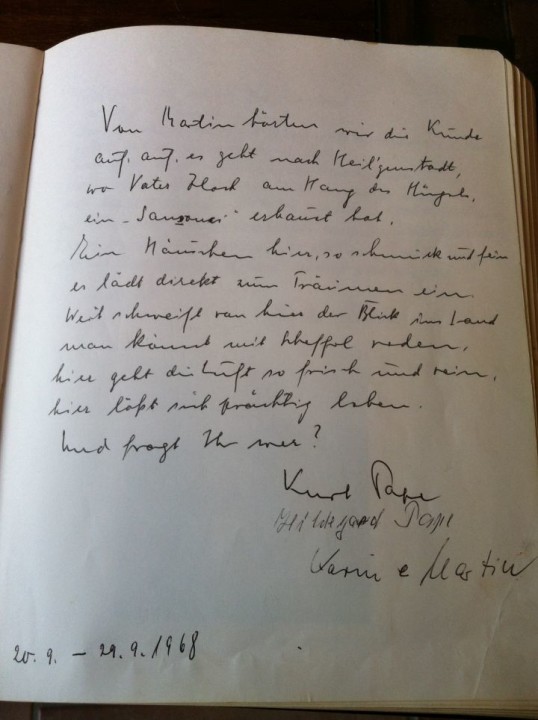 Von Martin hörten wir die Kunde
auf, auf, es geht nach Heil'genstadt,
wo Vater am Hang des Hügels,
ein "Sanssouci" erbaut hat.
Ein Häuschen hier, so schmuck und fein
es lädt direkt zum Träumen ein.
Weit schweift von hier der Blick ins Land
man könnt mit Scheffel reden,
hier geht die Luft so frisch und rein,
hier läßt sich prächtig leben.
Und fragt Ihr wer?
Kurt Pape
Hildegard Pape
Karin e Martin
20.9. – 29.9.1968